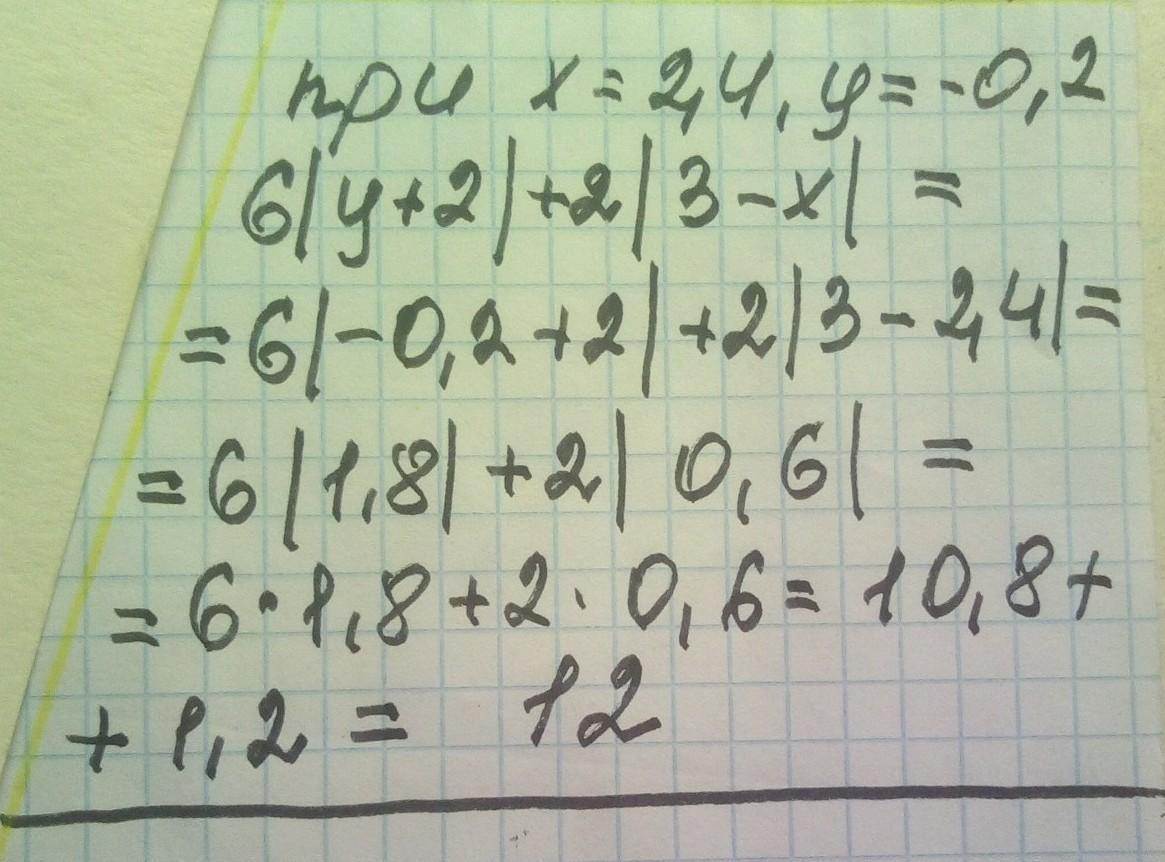 при x = 2,4, y = -0,2
6|y+2|+2|3-x| =
=6|-0,2+2|+2|3-2,4|=
=6|1,8|+2|0,6| =
=6·1,8+2·0,6= 10,8+
+1,2 = 12